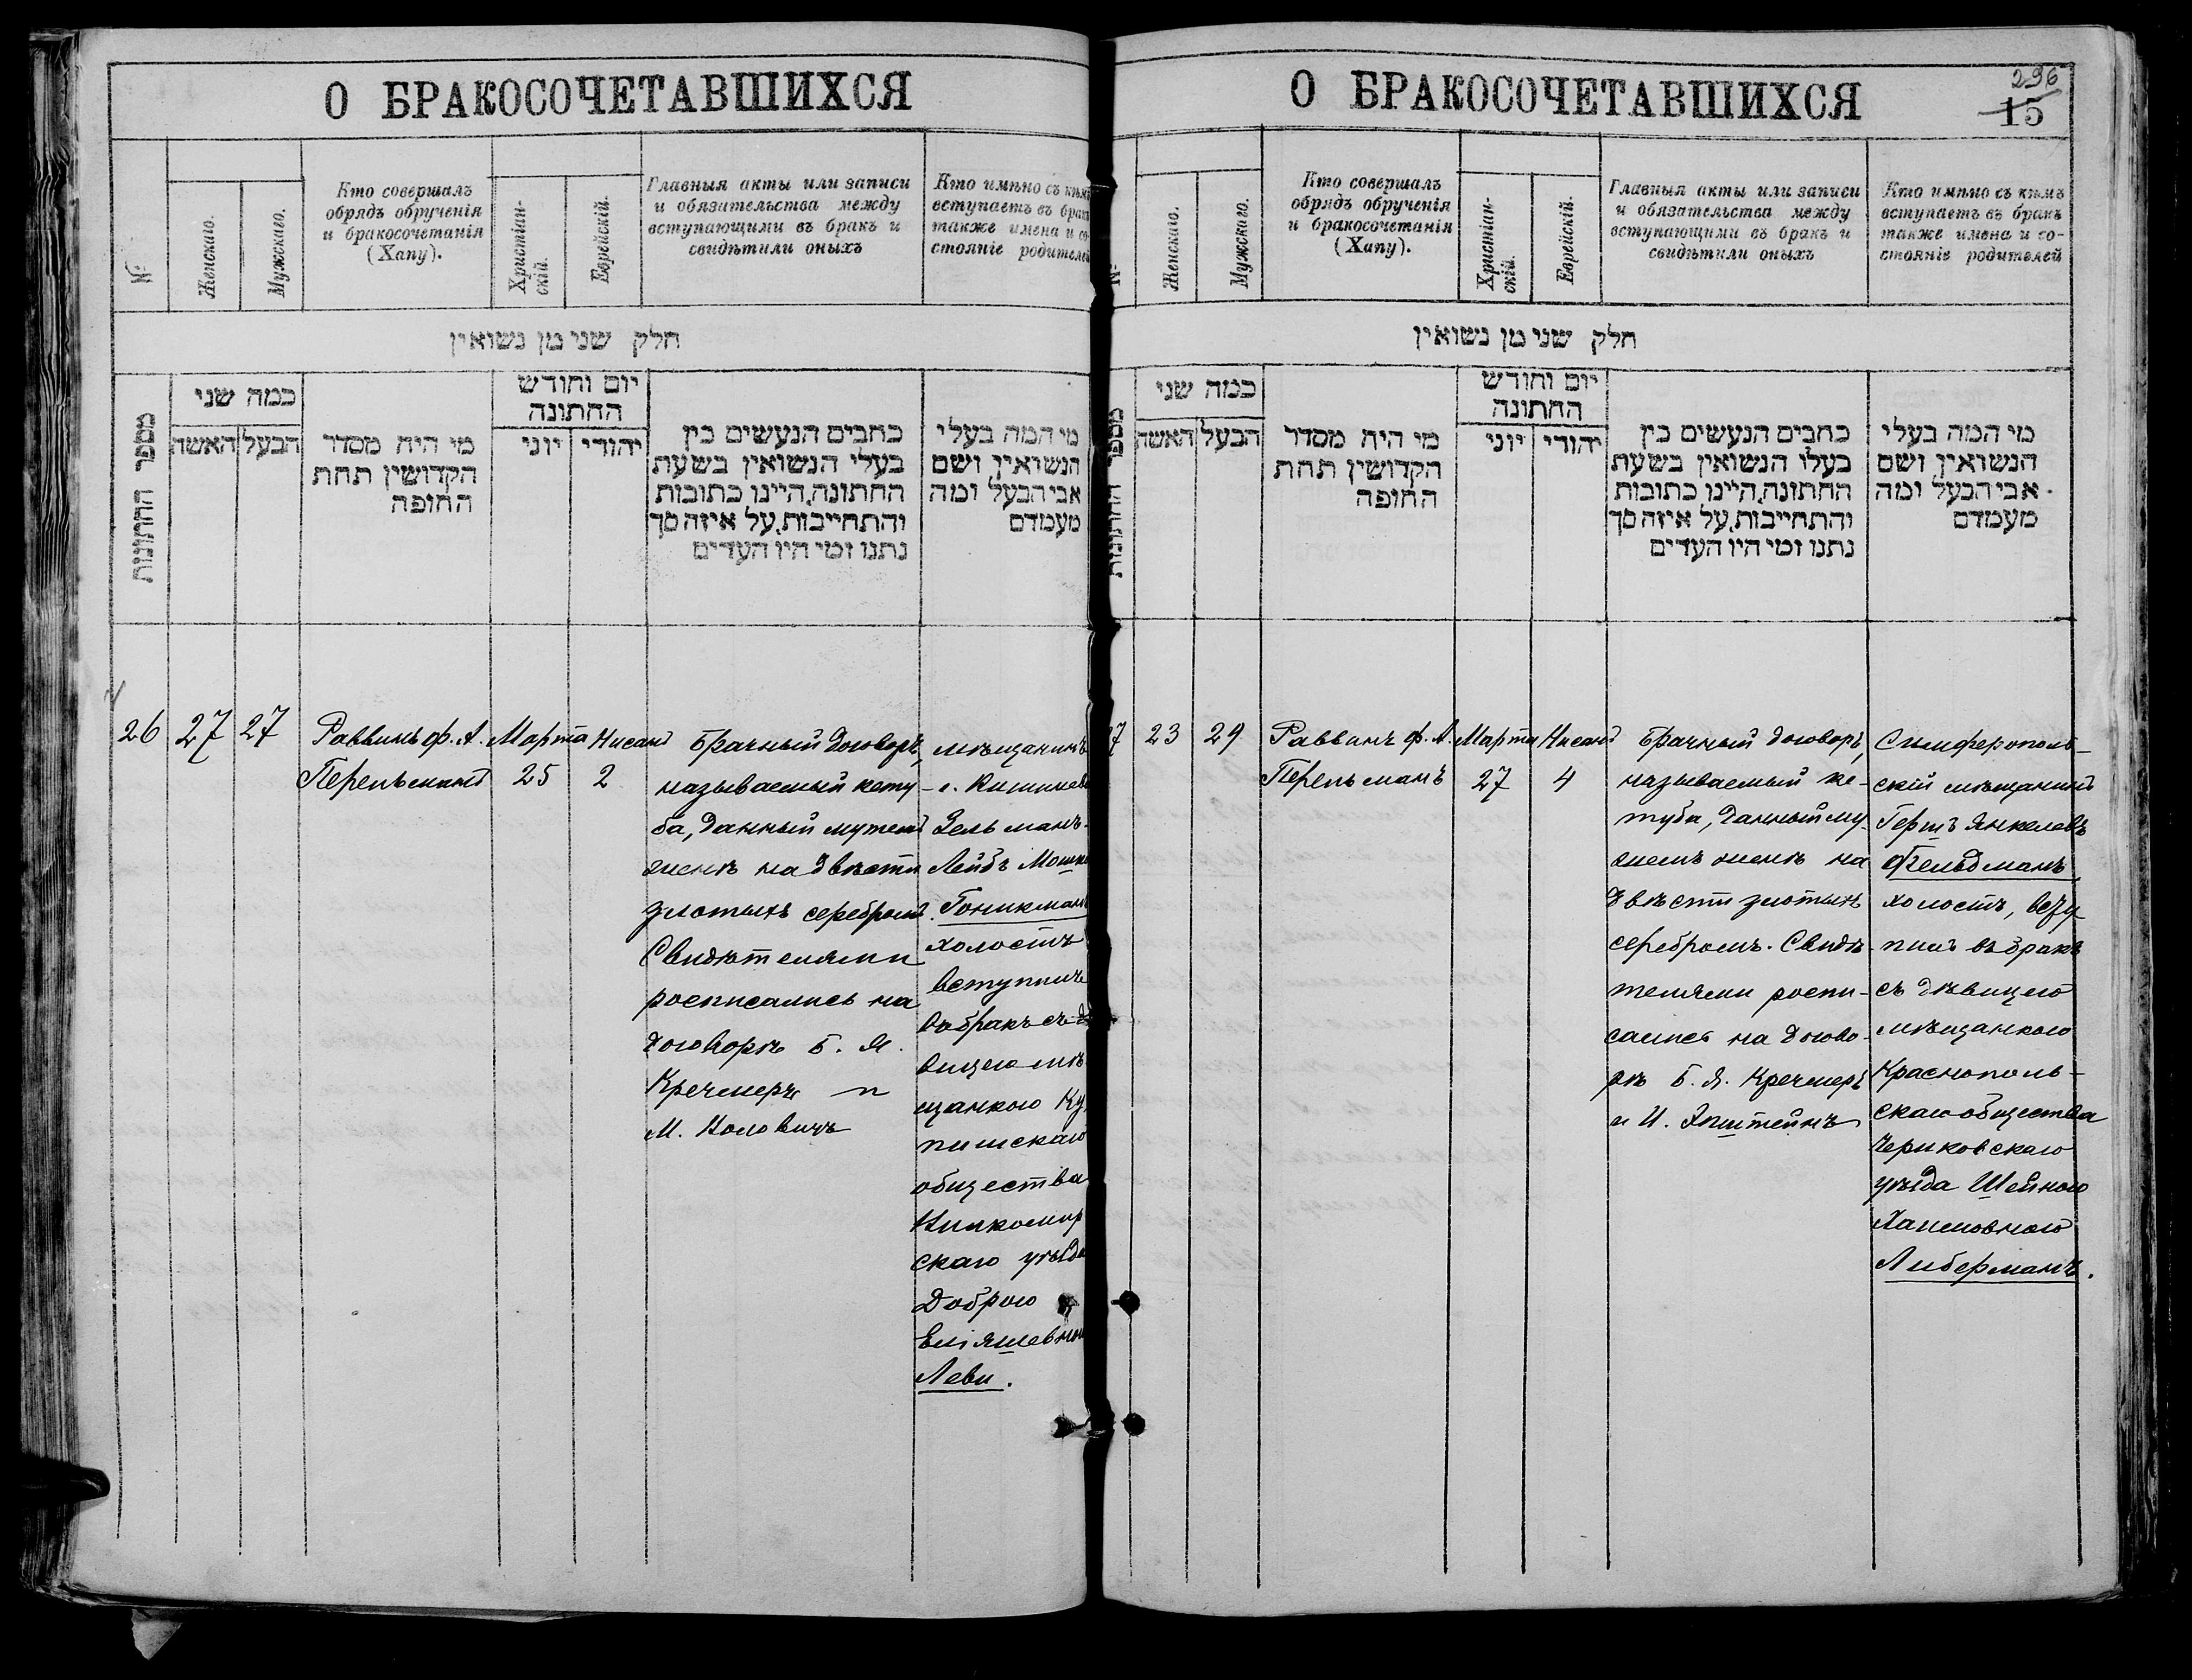 О БРАКОСОЧЕТАВШИХСЯ
№
Женскаго.
Мужскаго.
Кто совершалъ
обрядъ обрученія
и бракосочетанія
(Хапу).
Христіан-
скій.
Еврейскій.
Главныя акты или записи
и обязательства между
вступающими въ бракъ и
свидѣтили оныхъ
Кто имѣно съ кѣмъ
вступаетъ въ бракъ
также имена и со-
стояніе родителей
חלק שני מן נשואין
מספר החתונות
כמה שני
האשה
הבעל
מי היה מסדר
הקדושין תחת
החופה
יום וחודש
החתונה
יוני
יהודי
כתבים הנעשים בין
בעלי הנשואין בשעת
החתונה, היינו כתובות
והתחייבות, על איזה סך
נתנו ומי היו העדים
מי המה בעלי
הנשואין, ושם
אבי הבעל ומה
מעמדם
26
27
27
Раввинъ ф. А.
Перельманъ
Марта
25
Нисанъ
2
Брачный договоръ,
называемый кету-
ба, данный мужемъ
женѣ на двѣсти
злотыхъ серебромъ
Свидѣтелями
росписались на
договорѣ Б. Я.
Кречмеръ и
М.Ioловичъ
мѣщанинъ
г. Кишинева
Зельманъ-
Лейбъ Мошко
Гоникманъ
холостъ
вступилъ
въ бракъ съ дѣ
вицею мѣ
щанкою Ку
пишскаго
общества
Вилкомир
скаго уѣзда
Доброю
Еліяшевною
Леви.
О БРАКОСОЧЕТАВШИХСЯ
296
15
№
Женскаго.
Мужскаго.
Кто совершалъ
обрядъ обрученія
и бракосочетанія
(Хапу).
Христіан-
скій.
Еврейскій.
Главныя акты или записи
и обязательства между
вступающими въ бракъ и
свидѣтили оныхъ
Кто имѣно съ кѣмъ
вступаетъ въ бракъ
также имена и со-
стояніе родителей
חלק שני מן נשואין
מספר החתונות
כמה שני
האשה
הבעל
מי היה מסדר
הקדושין תחת
החופה
יום וחודש
החתונה
יוני
יהודי
כתבים הנעשים בין
בעלי הנשואין בשעת
החתונה, היינו כתובות
והתחייבות, על איזה סך
נתנו ומי היו העדים
מי המה בעלי
הנשואין, ושם
אבי הבעל ומה
מעמדם
27
23
29
Раввинъ ф. А.
Перельманъ
Марта
27
Нисанъ
4
Брачный договоръ,
называемый ке-
туба, данный му-
жемъ женѣ на
двѣсти злотыхъ
серебромъ. Свидѣ-
телями роспи-
сались на догово-
рѣ Б. Я. Кречмеръ
и И. Эпштейнъ
Симферополь-
скій мѣщанинъ
Гершъ Янкелевъ
Фельдманъ
холостъ, всту
пилъ въ бракъ
съ дѣвицею
мѣщанкою
Краснополь-
скаго общества
Чериковскаго
уѣзда Шейною
Хаимовною
Либерманъ.